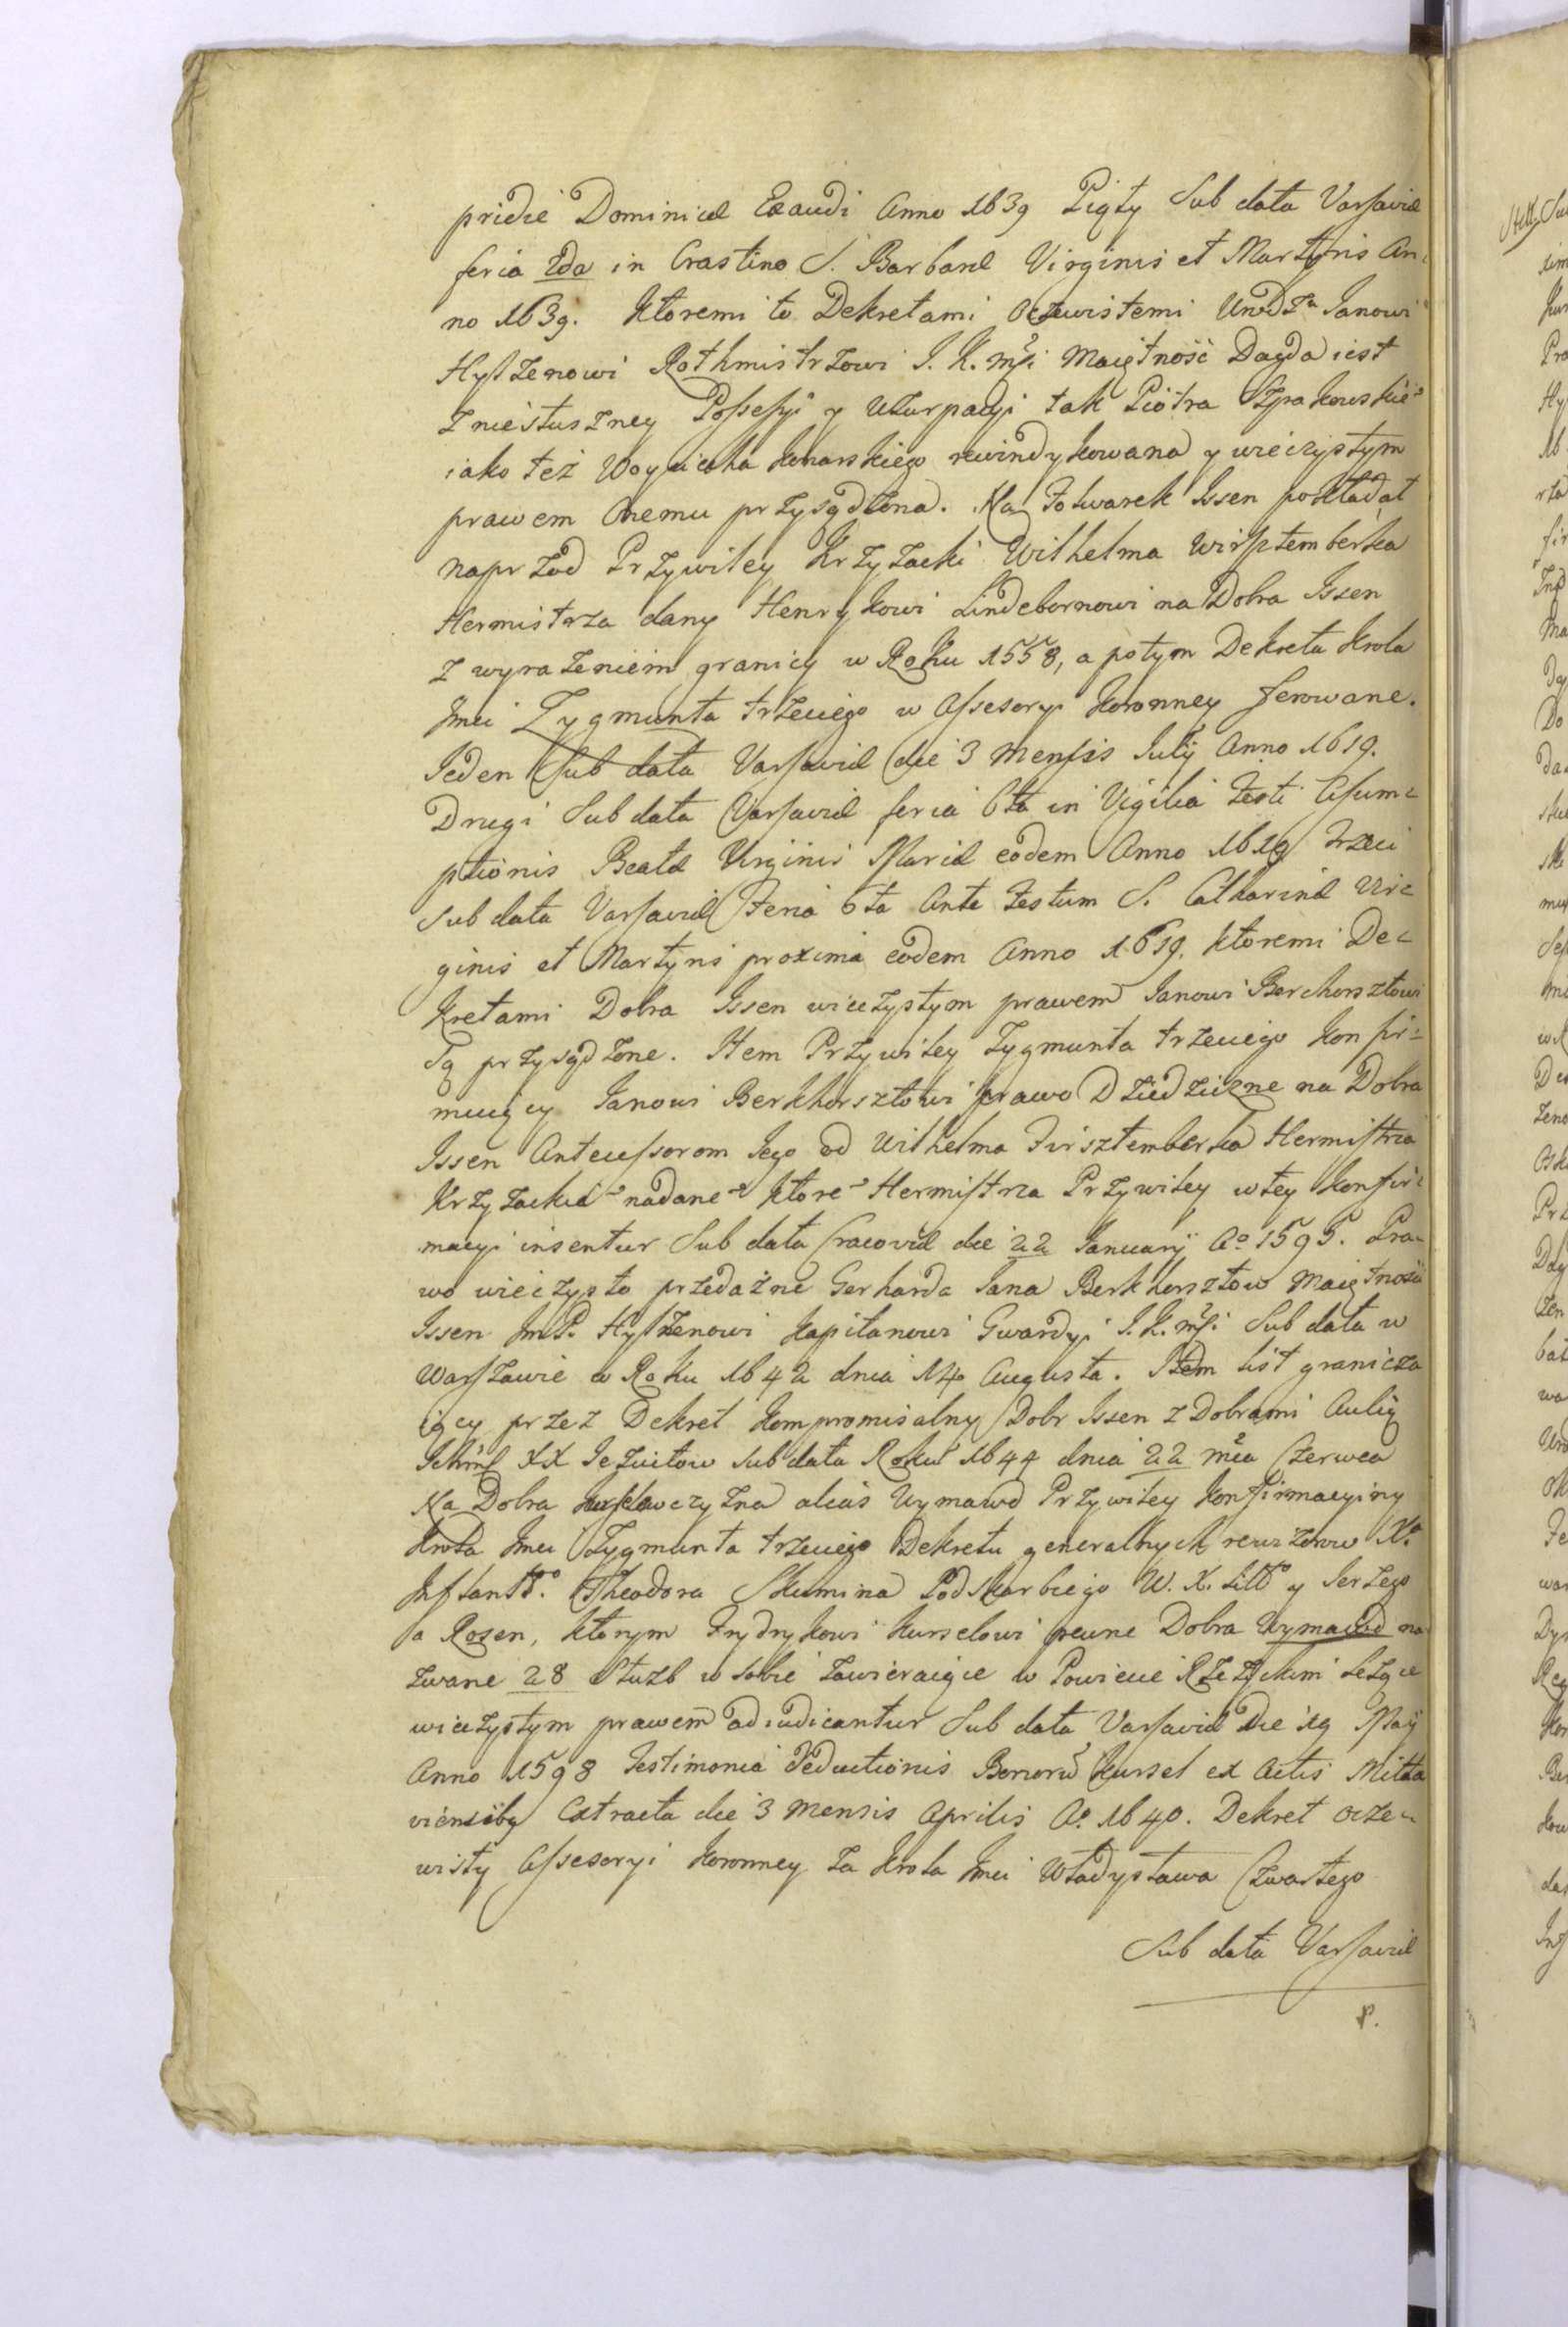 pridie Dominicæ Exaudi Anno 1639 Piąty Sub data Varsaviæ
feria 2da in Crastino S. Barbaræ Virginis et Martyris An-
no 1639. Ktoremi to Dekretami Oczewistemi Urodz: Janowi
Hylzenowi Rothmistrzowi J. K. Mści Maiętność Dagda iest
z niesłuszney Possesyi y Uzurpacyi tak Piotra Szpakowskie°
iako też Woyciecha Konarskiego rewindykowana y wieczystym
prawem Onemu przysądzona. Na Folwarek Issen pokładał
naprzod Przywiley Krzyżacki Wilhelma Wirsztemberka
Hermistrza dany Henrykowi Lindebornowi na Dobra Issen
z wyrażeniem granicy w Roku 1558, a potym Dekreta Krola
Jmci Zygmunta trzeciego w Assesoryi Koronney ferowane.
Jeden Sub data Varsaviæ die 3 Mensis Julÿ Anno 1619.
Drugi Sub data Varsaviæ feria 6ta in Vigilia Festi Assum-
ptionis Beatæ Virginis Mariæ eodem Anno 1619 Trzeci
sub data Varsaviæ Feria 6ta Ante Festum S. Catharinæ Vir-
ginis et Martyris proxima eodem Anno 1619. ktoremi De-
kretami Dobra Issen wieczystym prawem Janowi Berchorsztowi
są przysądzone. Item Przywiley Zygmunta trzeciego konfir-
muiący Janowi Berkhorsztowi prawo Dziedziczne na Dobra
Issen Antecessorom Jego od Wilhelma Firsztemberka Hermistrza
Krzyżackie° nadane° ktore° Hermistrza Przywiley w tey konfir-
macyi inseritur Sub data Cracoviæ die 22 Januarÿ A° 1595. Pra-
wo wieczysto przedażne Gerharda Jana Berkhorsztow Maiętności
Issen JmP. Hylzenowi Kapitanowi Gwardyi J. K. Mści Sub data w
Warszawie w Roku 1642 dnia 14 Augusta. Item List granicza
iący przez Dekret kompromisalny Dobr Issen z Dobrami Aulią
Ichmć XX Jezuitow sub data Roku 1644 dnia 22 mca Czerwca
Na Dobra alias Wymawd Przywiley Konfirmacyiny
Krola Jmci Zygmunta trzeciego Dekretu generalnych rewizorow X.
Inflantt°. Theodora Skumina Podskarbiego W. X. Litt° y Jerzego
a Rosen, ktorym Frydrykowi Kurselowi pewne Dobra Wymawd na
zwane 28 Służb w sobie zawieraiące w Powiecie Rzeżyckim leżące
wieczystym prawem adiudicantur Sub data Varsaviæ Die 19 Maÿ
Anno 1598 Testimonia Deductionis Bonorũ Kursel ex Actis Mitta
viensibꝫ Extracta die 3 Mensis Aprilis A° 1640. Dekret Ocze-
wisty Assesoryi Koronney za Krola Jmci Władysława Czwartego
Sub data Varsaviæ